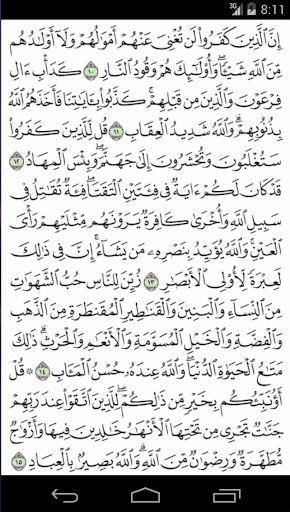 3G 8:11
إِنَّ ٱلَّذِينَ كَفَرُوا۟ لَن تُغْنِىَ عَنْهُمْ أَمْوَٰلُهُمْ وَلَآ أَوْلَٰدُهُم
مِّنَ ٱللَّهِ شَيْـًٔا ۖ وَأُو۟لَٰٓئِكَ هُمْ وَقُودُ ٱلنَّارِ ١٠ كَدَأْبِ ءَالِ
فِرْعَوْنَ وَٱلَّذِينَ مِن قَبْلِهِمْ ۚ كَذَّبُوا۟ بِـَٔايَٰتِنَا فَأَخَذَهُمُ ٱللَّهُ
بِذُنُوبِهِمْ ۗ وَٱللَّهُ شَدِيدُ ٱلْعِقَابِ ١١ قُل لِّلَّذِينَ كَفَرُوا۟
سَتُغْلَبُونَ وَتُحْشَرُونَ إِلَىٰ جَهَنَّمَ ۚ وَبِئْسَ ٱلْمِهَادُ ١٢
قَدْ كَانَ لَكُمْ ءَايَةٌ فِى فِئَتَيْنِ ٱلْتَقَتَا ۖ فِئَةٌ تُقَٰتِلُ فِى
سَبِيلِ ٱللَّهِ وَأُخْرَىٰ كَافِرَةٌ يَرَوْنَهُم مِّثْلَيْهِمْ رَأْىَ
ٱلْعَيْنِ ۚ وَٱللَّهُ يُؤَيِّدُ بِنَصْرِهِۦ مَن يَشَآءُ ۗ إِنَّ فِى ذَٰلِكَ
لَعِبْرَةً لِّأُو۟لِى ٱلْأَبْصَٰرِ ١٣ زُيِّنَ لِلنَّاسِ حُبُّ ٱلشَّهَوَٰتِ
مِنَ ٱلنِّسَآءِ وَٱلْبَنِينَ وَٱلْقَنَٰطِيرِ ٱلْمُقَنطَرَةِ مِنَ ٱلذَّهَبِ
وَٱلْفِضَّةِ وَٱلْخَيْلِ ٱلْمُسَوَّمَةِ وَٱلْأَنْعَٰمِ وَٱلْحَرْثِ ۗ ذَٰلِكَ
مَتَٰعُ ٱلْحَيَوٰةِ ٱلدُّنْيَا ۖ وَٱللَّهُ عِندَهُۥ حُسْنُ ٱلْمَـَٔابِ ١٤ قُلْ
أَؤُنَبِّئُكُم بِخَيْرٍ مِّن ذَٰلِكُمْ ۚ لِلَّذِينَ ٱتَّقَوْا۟ عِندَ رَبِّهِمْ
جَنَّٰتٌ تَجْرِى مِن تَحْتِهَا ٱلْأَنْهَٰرُ خَٰلِدِينَ فِيهَا وَأَزْوَٰجٌ
مُّطَهَّرَةٌ وَرِضْوَٰنٌ مِّنَ ٱللَّهِ ۗ وَٱللَّهُ بَصِيرٌۢ بِٱلْعِبَادِ ١٥